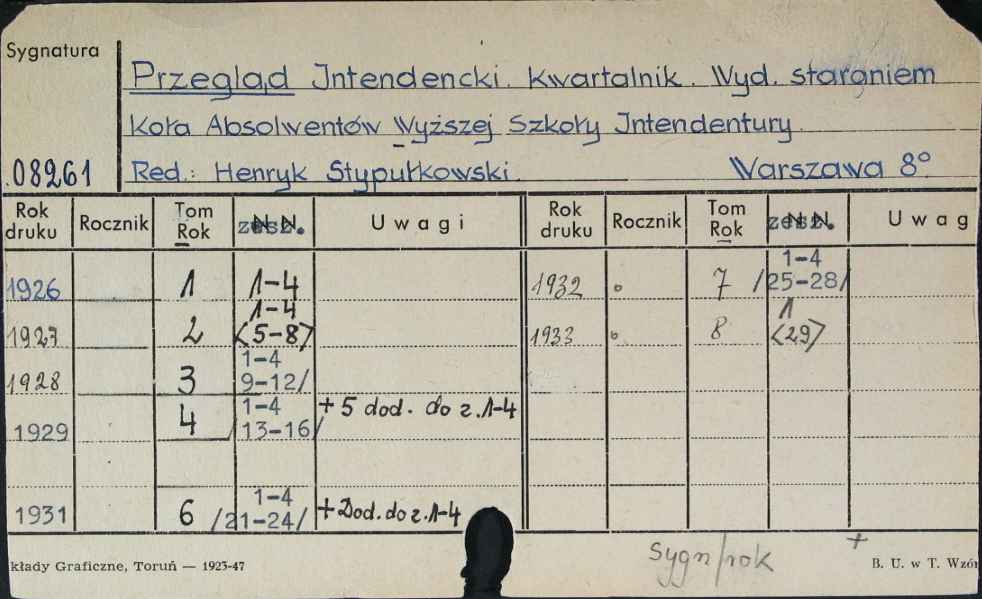 Sygnatura
Przegląd Intendencki. Kwartalnik. Wyd. staraniem
Koła Absolwentów Wyższej Szkoły Intendentury.
08261 Red.: Henryk Stypułkowski. Warszawa 8°.
Rok druku Rocznik Tom Rok zesz. U w a g i Rok druku Rocznik Tom Rok zesz. U w a g
1926 1 1-4 1932 7 1-4 /25-28/
1927 2 1-4 <5-8> 1933 8 1 <29>
1928 3 1-4 9-12/
1929 4 1-4 13-16/ +5 dod. do z.1-4
1931 6 1-4 /21-24/ +Dod. do z.1-4
Sygn/rok +
kłady Graficzne, Toruń — 1923-47 B. U. w T. Wzór